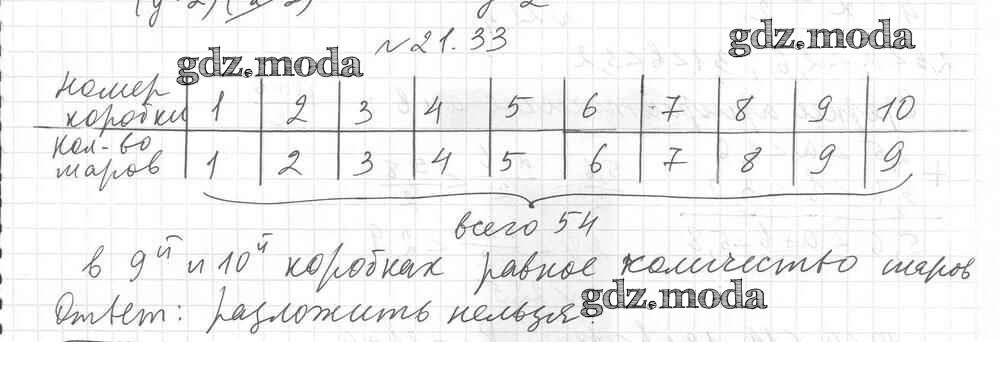 №21.33
gdz.moda
gdz.moda
номер коробки 1 2 3 4 5 6 7 8 9 10
кол-во шаров 1 2 3 4 5 6 7 8 9 9
всего 54
в 9й и 10й коробках равное количество шаров
gdz.moda
Ответ: разложить нельзя.